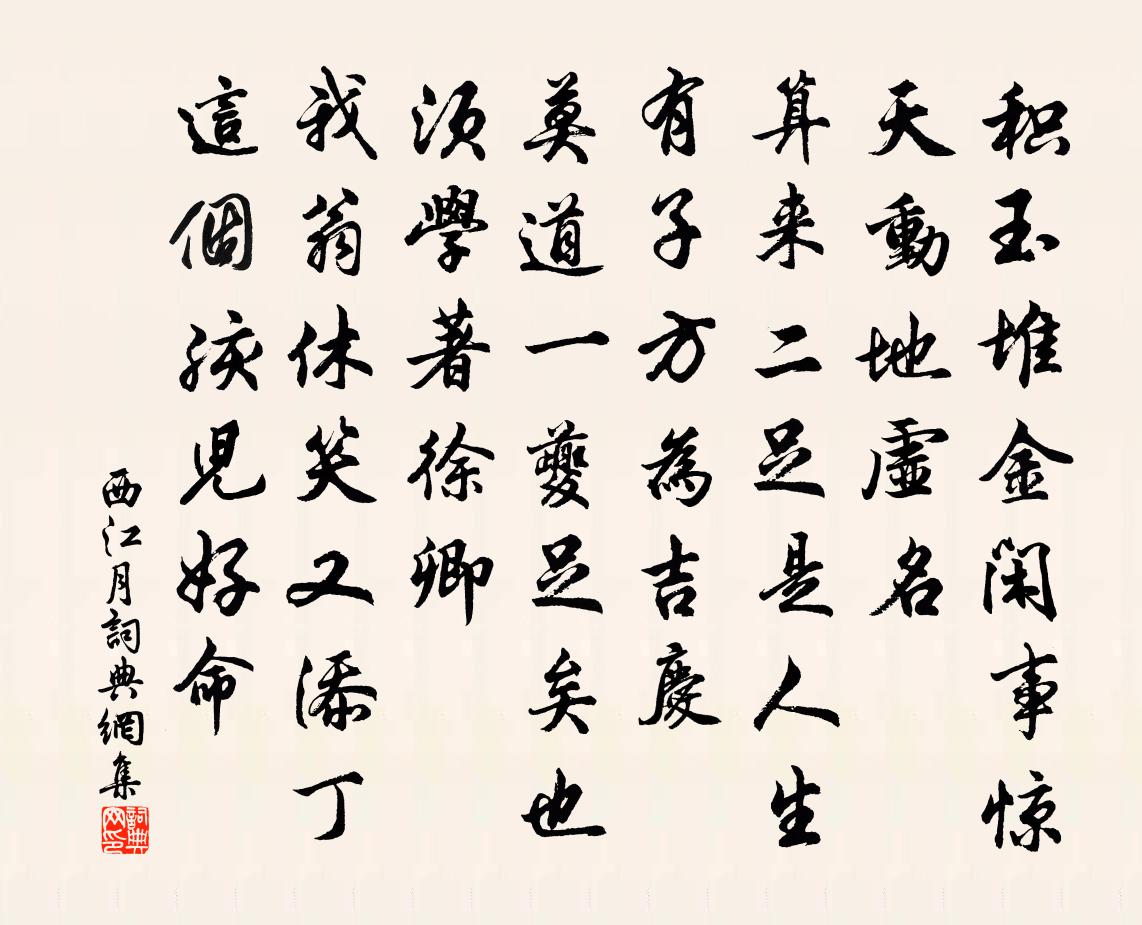 积玉堆金闲事惊
天動地虚名
算来二足是人生
有子方為吉慶
莫道一夔足矣也
須學著徐卿
我翁休笑又添丁
這個孩児好命
西江月詞典網集
詞典网印